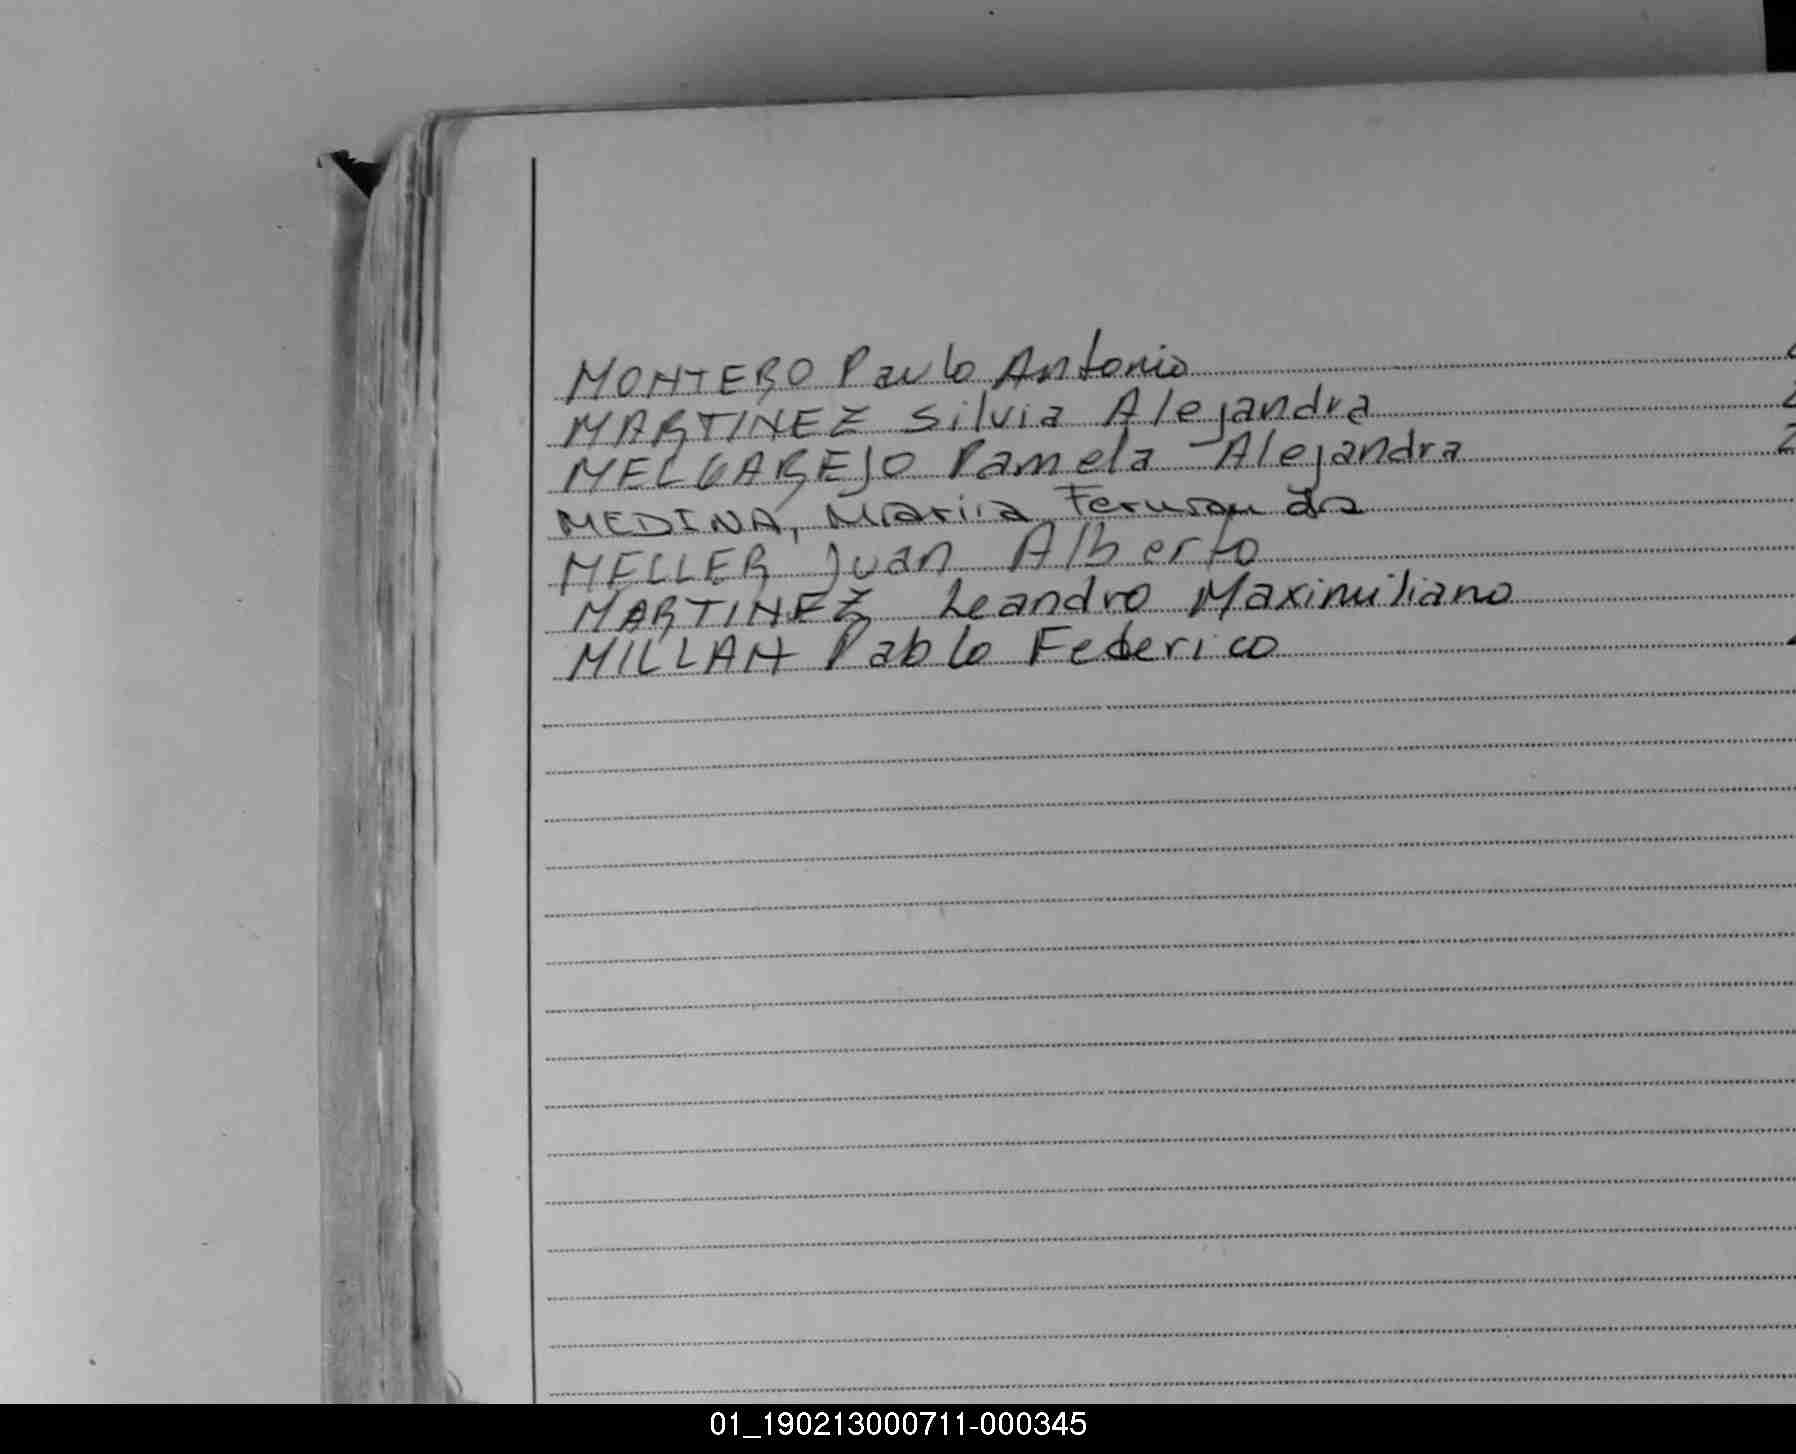 MONTERO Paulo Antonio
MARTINEZ Silvia Alejandra
MELGAREJO Pamela Alejandra
MEDINA, Maria Fernanda
MELLER Juan Alberto
MARTINEZ Leandro Maximiliano
MILLAN Pablo Federico
01_190213000711-000345